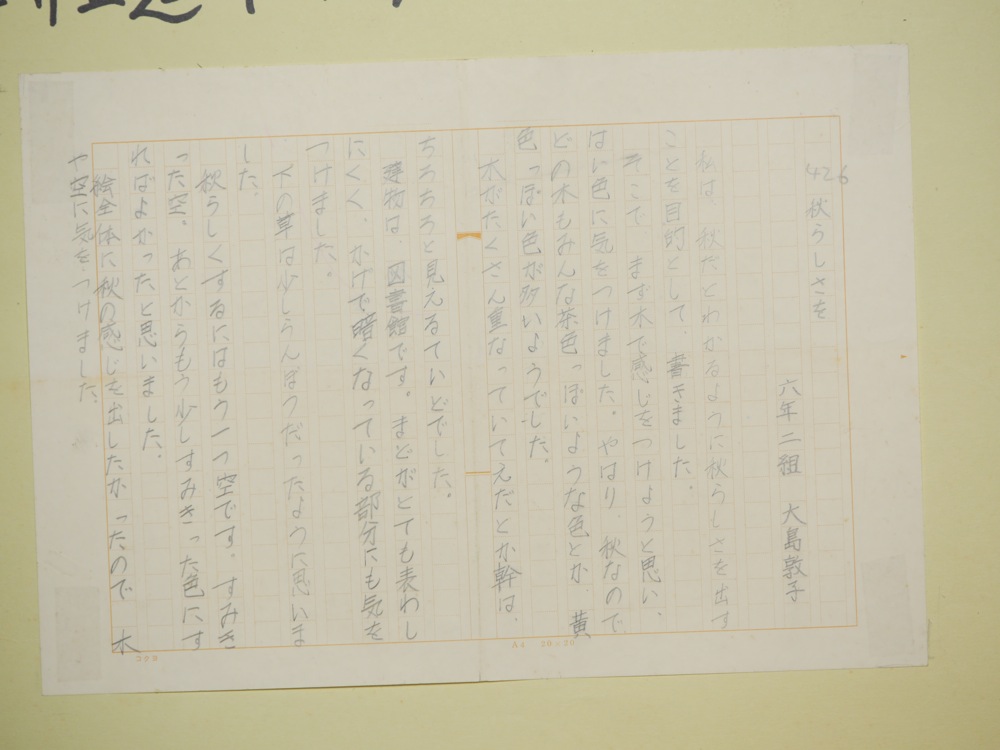 426
秋らしさを
六年二組　大島敦子
私は、秋だとわかるように秋らしさを出す
ことを目的として、書きました。
そこで、まず木で感じをつけようと思い、
はい色に気をつけました。やはり、秋なので
どの木もみんな茶色っぽいような色とか、黄
色っぽい色が多いようでした。
木がたくさん重なっていてえだとか幹は、
ちらちらと見えるていどでした。
建物は、図書館です。まどがとても表わし
にくく、かげで暗くなっている部分にも気を
つけました。
下の草は少しらんぼうだったように思いま
した。
秋らしくするにはもう一つ空です。すみき
った空。あとからもう少しすみきった色にす
ればよかったと思いました。
絵全体に秋の感じを出したかったので　木
や空に気をつけました。
A4 20×20
コクヨ